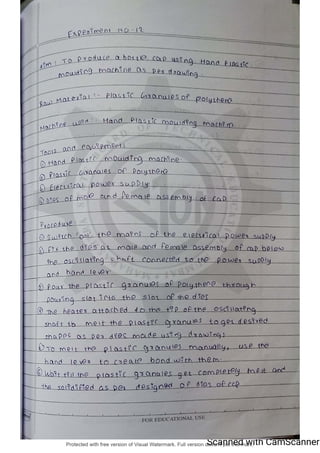 Experiment NO-12
Aim: To Produce a bottle cap using Hand Plastic
moulding machine as per drawing.
Raw Material :- Plastic Granules of polythene
Machine used :- Hand Plastic moulding machine
Tools and equipment:
① Hand Plastic moulding machine
② Plastic Granules of Polythene
③ Electrical power supply
④ Dies of male and female assembly of cap
Procedure:
① Switch 'on' the mains of the electrical power supply
② Fix the dies as male and female assembly of cap below
the oscillating shaft connected to the power supply
and hand lever
③ Pour the plastic granules of polythene through
pouring slot into the slot of the dies
④ The heater attached to the tip of the oscillating
shaft to melt the plastic granules to get desired
shapes as per dies made using drawings
⑤ To melt the plastic granules manually, use the
hand lever to create bond with them.
⑥ Wait till the plastic granules get completely melt and
the solidified as per designed of dies of cap
FOR EDUCATIONAL USE
Protected with free version of Visual Watermark. Full version
Scanned with CamScanner